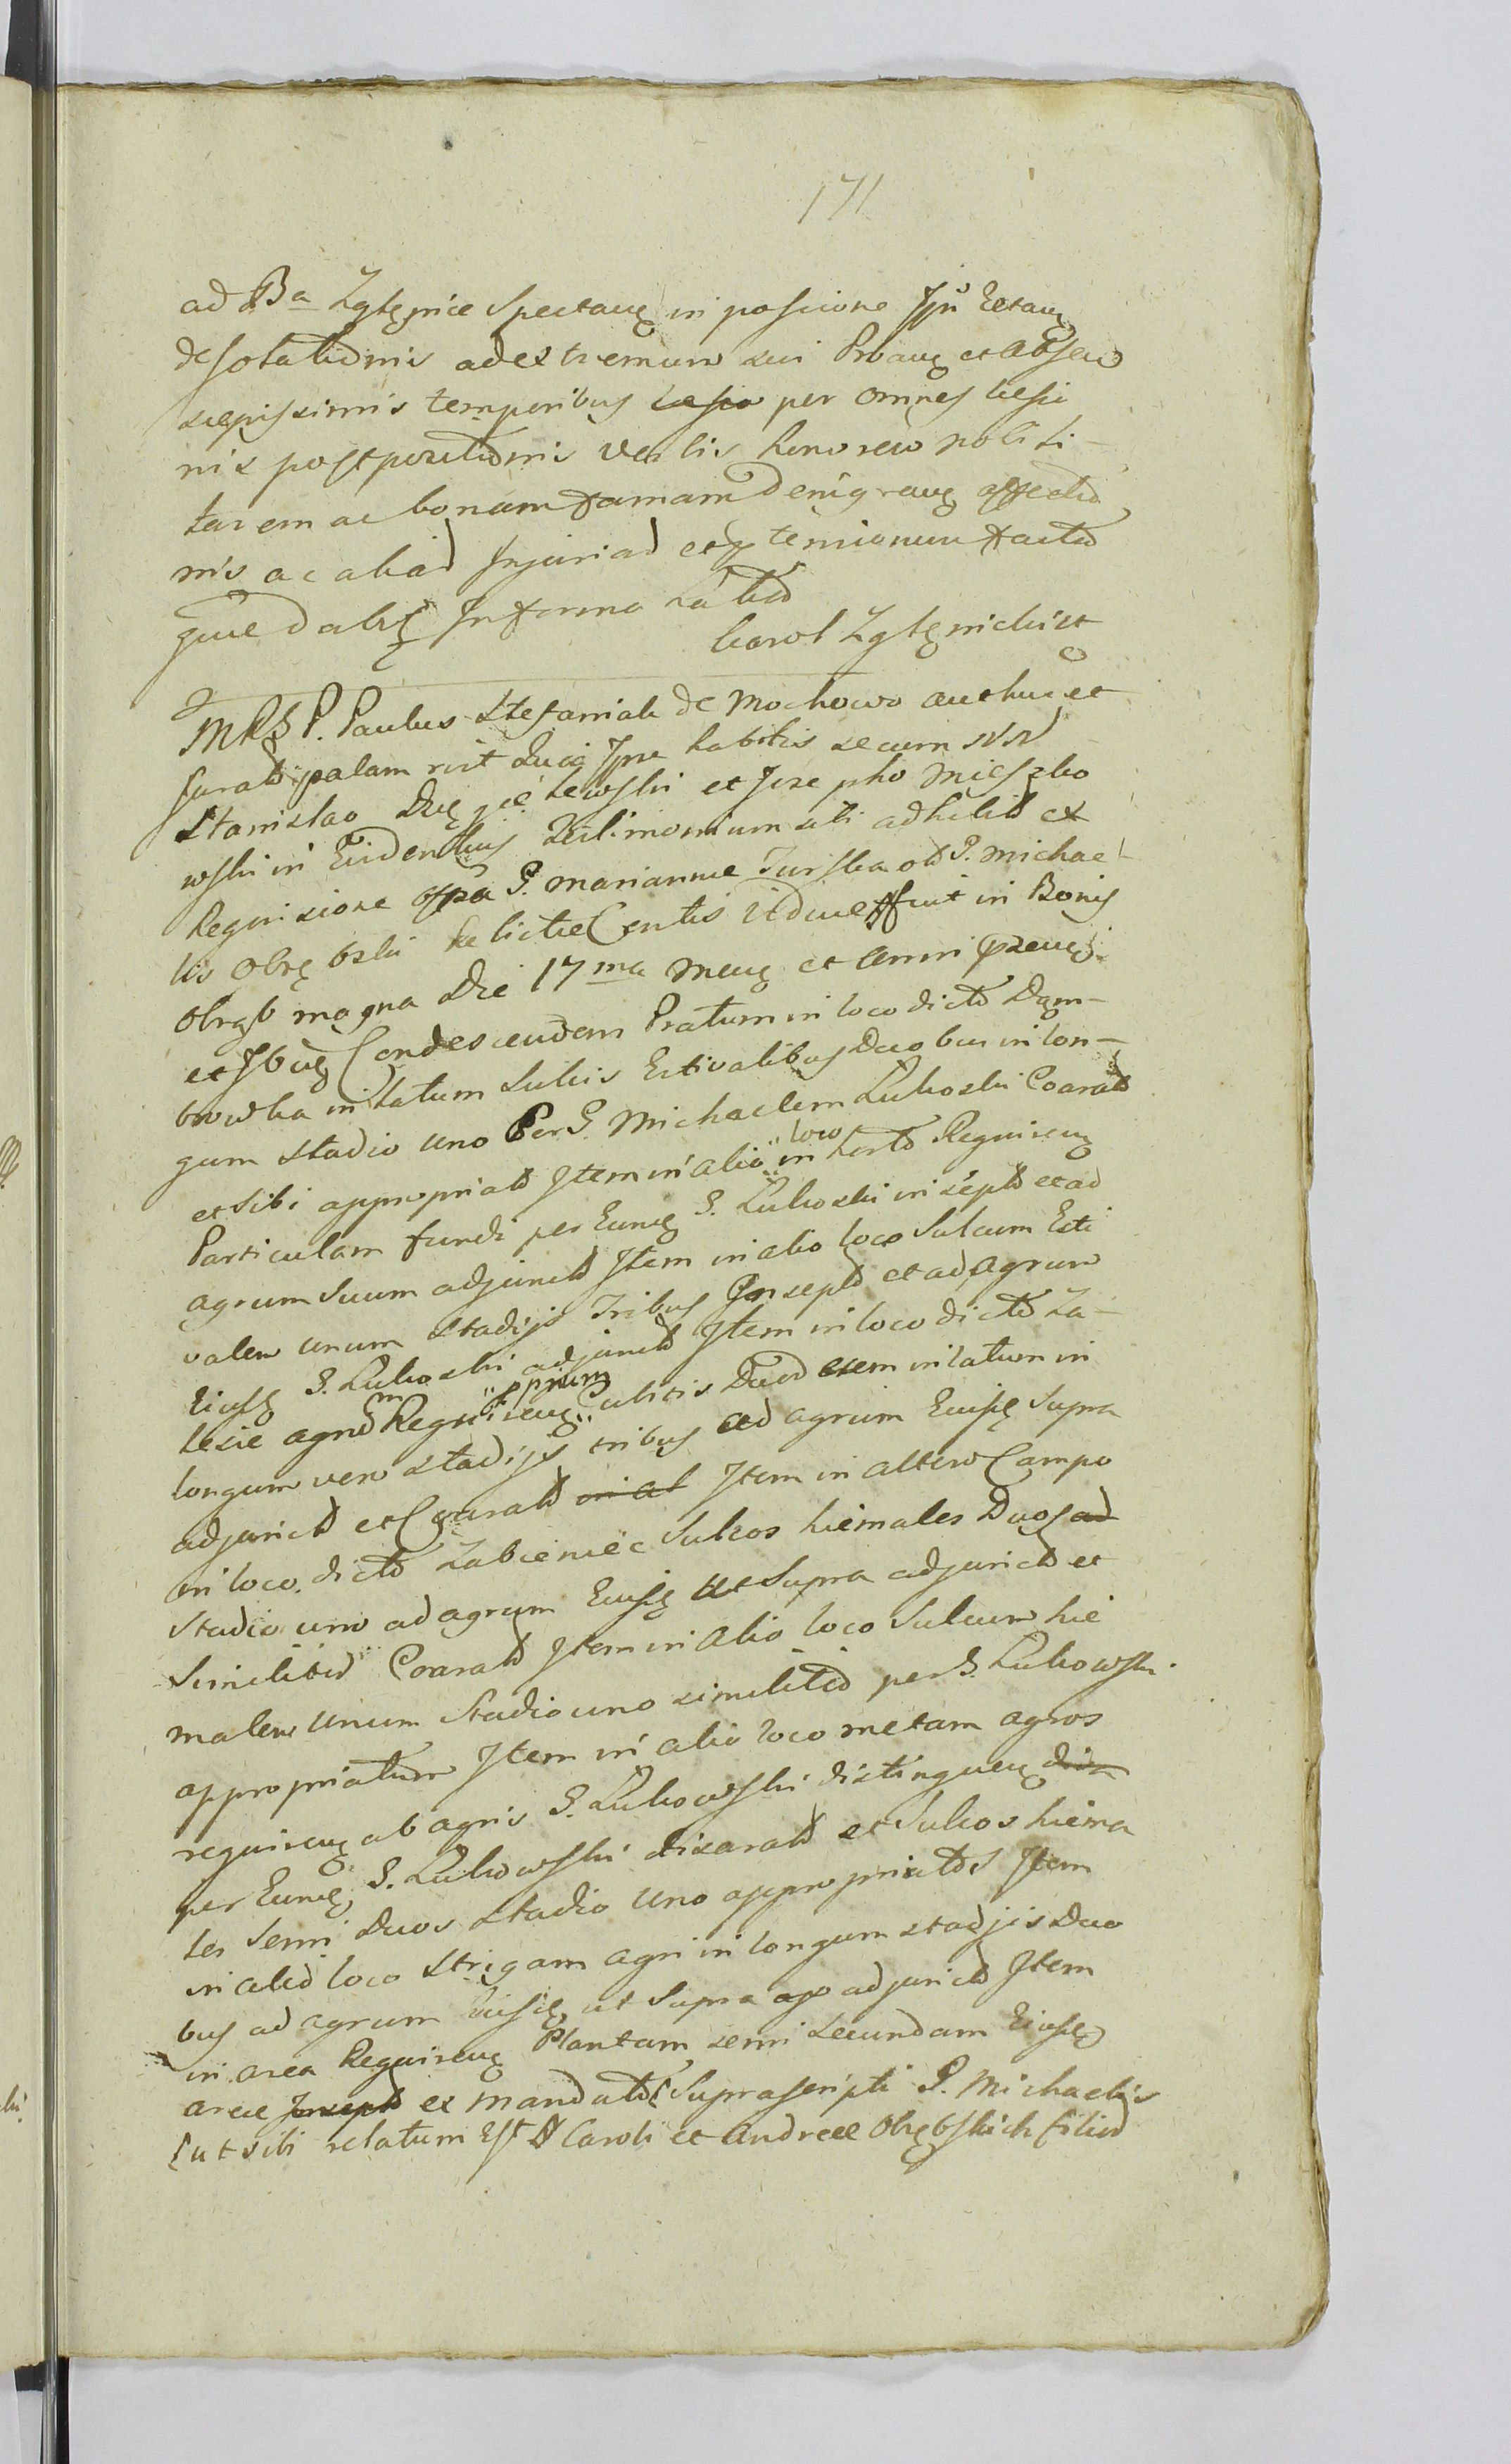 171
ad Ba Zglęnice Spectang in possione Jjŭ Extang
desolationis ad extremum sui Proang et absen
saepissimis temporibus laesio per omnes laesio
nis postpositionis verbis honorem nobili-
tarem ac bonam famam denigrang affectio
nis ac aliad Injuriad et
quae dabit In forma Latio
Carol Zglęnickisst
MRS P. Paulus Stefaniak de Mochowo authus et
Jurats palam rcit Quia Jpse habitis secum NN
Stanislao et Josepho Mieszko
wski in Evidentius Testimonium sibi adhibits ex
Requisione Gspa G. Mariannae Turska olt G. Michae-
lis Obrębski Relictae Consortis viduae fuit in Bonis
Obręb magna Die 17ma Meng et Anni praeng
et Jbiq Condescendem Pratum in loco dicto Dąm-
browka in latum Sulcis Estivalibus Duobus in lon-
gum Stadio uno Per G. Michaelem Lukoski Coarats
et sibi appropriats Item in alio loco in horto Requireng
Particulam fundi per Eunq G. Lukoski insepts et ad
agrum suum adjuncts Item in alio loco Sulcum Esti
valem unum Stadijs Tribus Insepts et ad Agrum
Eiusq G. Lukoski adjuncts Item in loco dicto Za-
lesie agrum Requireng pprium Cubitis Duod in latum in
longum vero Stadijs tribus ad agrum Eiusq Supra
adjuncts et Coarats in al Item in altero Campo
in loco dicto Zabieniec Sulcos hiemales Duos ad
Stadio uno ad agrum Eiusq ut Supra adjuncts et
Similiter Coarats Item in Alio loco Sulcum hie
malem unum Stadio uno similiter per G. Lukowski
appropriatum Item in alio loco metam agros
requireng ab agris G. Lukowski distingueng
per Eunq G. Lukowski disarats et Sulcos hiema
les Semi duos Stadio uno appropriatos Item
in alio loco Strigam agri in longum stadjis Duo
bus ad agrum Eiusq ut Supra ap adjuncts Item
in area Requireng Plantam semi secundam Eiusq
areae Insepts ex mandato Suprascripti G. Michaelis
ut sibi relatum Est N Caroli et Andreae Obrębskich filiod